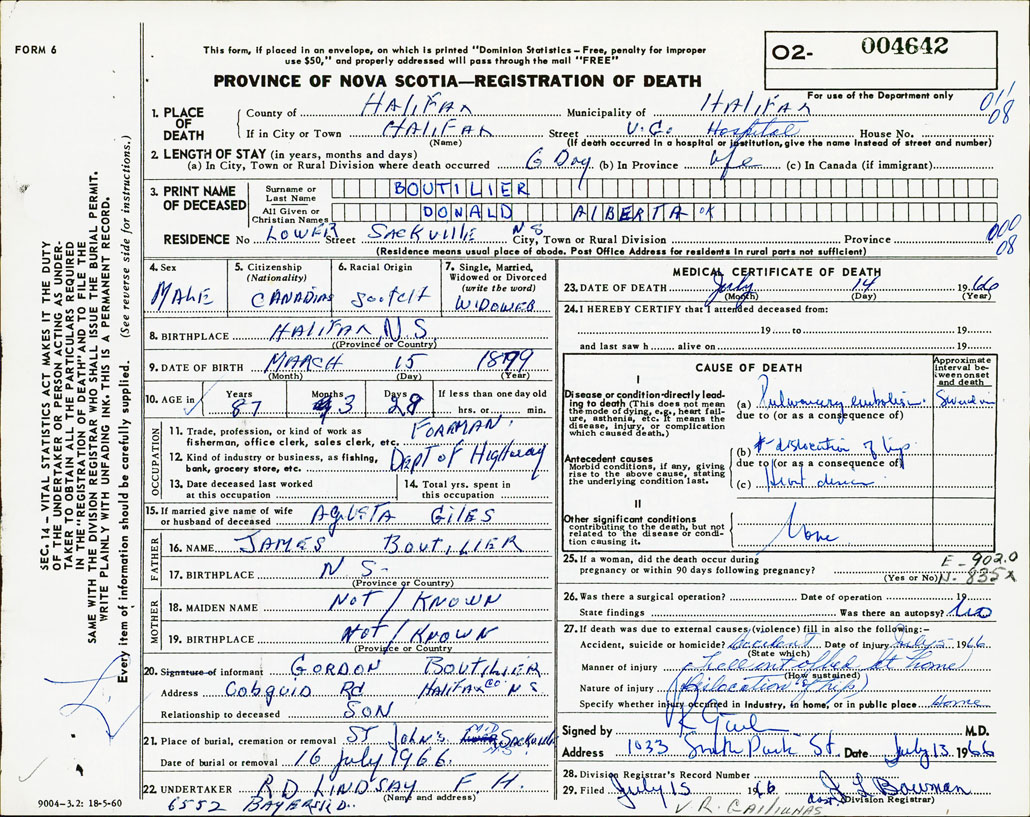 FORM 6
This form, if placed in an envelope, on which is printed "Dominion Statistics – Free, penalty for improper
use $50," and properly addressed will pass through the mail "FREE"
PROVINCE OF NOVA SCOTIA—REGISTRATION OF DEATH
02- 004642
For use of the Department only
011
08
1. PLACE OF DEATH
County of HALIFAX Municipality of HALIFAX
If in City or Town HALIFAX Street V.G. Hospital House No.
(Name) (If death occurred in a hospital or institution, give the name instead of street and number)
2. LENGTH OF STAY (in years, months and days)
(a) In City, Town or Rural Division where death occurred 6 Day (b) In Province life (c) In Canada (if immigrant)
3. PRINT NAME OF DECEASED
Surname or Last Name BOUTILIER
All Given or Christian Names DONALD ALBERTA OK
RESIDENCE No LOWER Street SACKVILLE N S City, Town or Rural Division Province
000
08
(Residence means usual place of abode. Post Office Address for residents in rural parts not sufficient)
4. Sex
MALE
5. Citizenship
(Nationality)
CANADIAN
6. Racial Origin
7. Single, Married, Widowed or Divorced
(write the word)
WIDOWED
8. BIRTHPLACE HALIFAX, N.S.
(Province or Country)
9. DATE OF BIRTH MARCH 15 1879
(Month) (Day) (Year)
10. AGE in Years Months Days If less than one day old
87 3 28 hrs. or min.
OCCUPATION
11. Trade, profession, or kind of work as
fisherman, office clerk, sales clerk, etc. FORMAN.
12. Kind of industry or business, as fishing,
bank, grocery store, etc. Dept of Highway
13. Date deceased last worked
at this occupation
14. Total yrs. spent in
this occupation
15. If married give name of wife
or husband of deceased AGUSTA GILES
FATHER
16. NAME JAMES BOUTILIER
17. BIRTHPLACE N S.
(Province or Country)
MOTHER
18. MAIDEN NAME NOT KNOWN
19. BIRTHPLACE NOT KNOWN
(Province or Country)
20. Signature of informant GORDON BOUTILIER
Address Cobquid Rd HALIFAX CO. N S
Relationship to deceased SON
21. Place of burial, cremation or removal ST John's MID SACKVILLE
Date of burial or removal 16 July 1966.
22. UNDERTAKER R D LINDSAY F. H.
(Name and address)
6552 BAYERS RD.
9004-3.2: 18-5-60
MEDICAL CERTIFICATE OF DEATH
23. DATE OF DEATH July 14 1966
(Month) (Day) (Year)
24. I HEREBY CERTIFY that I attended deceased from:
19 to 19
and last saw h alive on 19
CAUSE OF DEATH
Approximate interval between onset and death
I
Disease or condition directly leading to death (This does not mean the mode of dying, e.g., heart failure, asthenia, etc. It means the disease, injury, or complication which caused death.)
(a) Pulmonary embolism
due to (or as a consequence of)
Antecedent causes
Morbid conditions, if any, giving rise to the above cause, stating the underlying condition last.
(b) dislocation of hip
due to (or as a consequence of)
(c) Heart disease
II
Other significant conditions contributing to the death, but not related to the disease or condition causing it.
None
25. If a woman, did the death occur during
pregnancy or within 90 days following pregnancy?
(Yes or No)
E-902.0
N-835X
26. Was there a surgical operation? Date of operation 19
State findings Was there an autopsy? no
27. If death was due to external causes (violence) fill in also the following:–
Accident, suicide or homicide? Accident Date of injury July 5 1966
(State which)
Manner of injury (Fell out of bed at home)
(How sustained)
Nature of injury (Dislocation of hip)
Specify whether injury occurred in Industry, in home, or in public place Home
Signed by M.D.
Address 1033 South Park St. Date July 15 1966
28. Division Registrar's Record Number
29. Filed July 15 1966 J L Bowman
(Division Registrar)
SEC. 14 – VITAL STATISTICS ACT MAKES IT THE DUTY
OF THE UNDERTAKER OR PERSON ACTING AS UNDER-
TAKER TO OBTAIN ALL THE PARTICULARS REQUIRED
IN THE "REGISTRATION OF DEATH" AND TO FILE THE
SAME WITH THE DIVISION REGISTRAR WHO SHALL ISSUE THE BURIAL PERMIT.
WRITE PLAINLY WITH UNFADING INK. THIS IS A PERMANENT RECORD.
Every item of information should be carefully supplied. (See reverse side for instructions.)